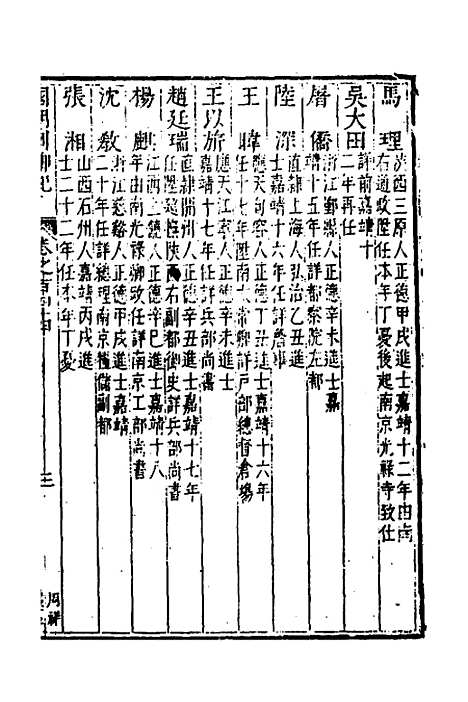 馬理 陝西三原人正德甲戌進士嘉靖十二年由南
右通政陞任本年丁憂後起南京光祿寺致仕
吳大田 詳前嘉靖十
二年再任
屠僑 浙江鄞縣人正德辛未進士嘉
靖十五年任詳都察院左都
陸深 直隸上海人弘治乙丑進
士嘉靖十六年任詳詹事
王暐 應天句容人正德丁丑進士嘉靖十六年
任十七年陞南太常卿詳戶部總督倉場
王以旂 應天江寧人正德辛未進士
嘉靖十七年任詳兵部尚書
趙廷瑞 直隸開州人正德辛丑進士嘉靖十七年
任陞是陝西右副都御史詳兵部尚書
楊麒 江西上饒人正德辛巳進士嘉靖十八
年由南光祿卿改任詳南京工部尚書
沈教 浙江慈谿人正德甲戌進士嘉靖
二十年任詳總理南京糧儲副都
張相 山西石州人嘉靖丙戌進
士二十二年任本年丁憂
國朝列卿紀 卷之百四十四 三